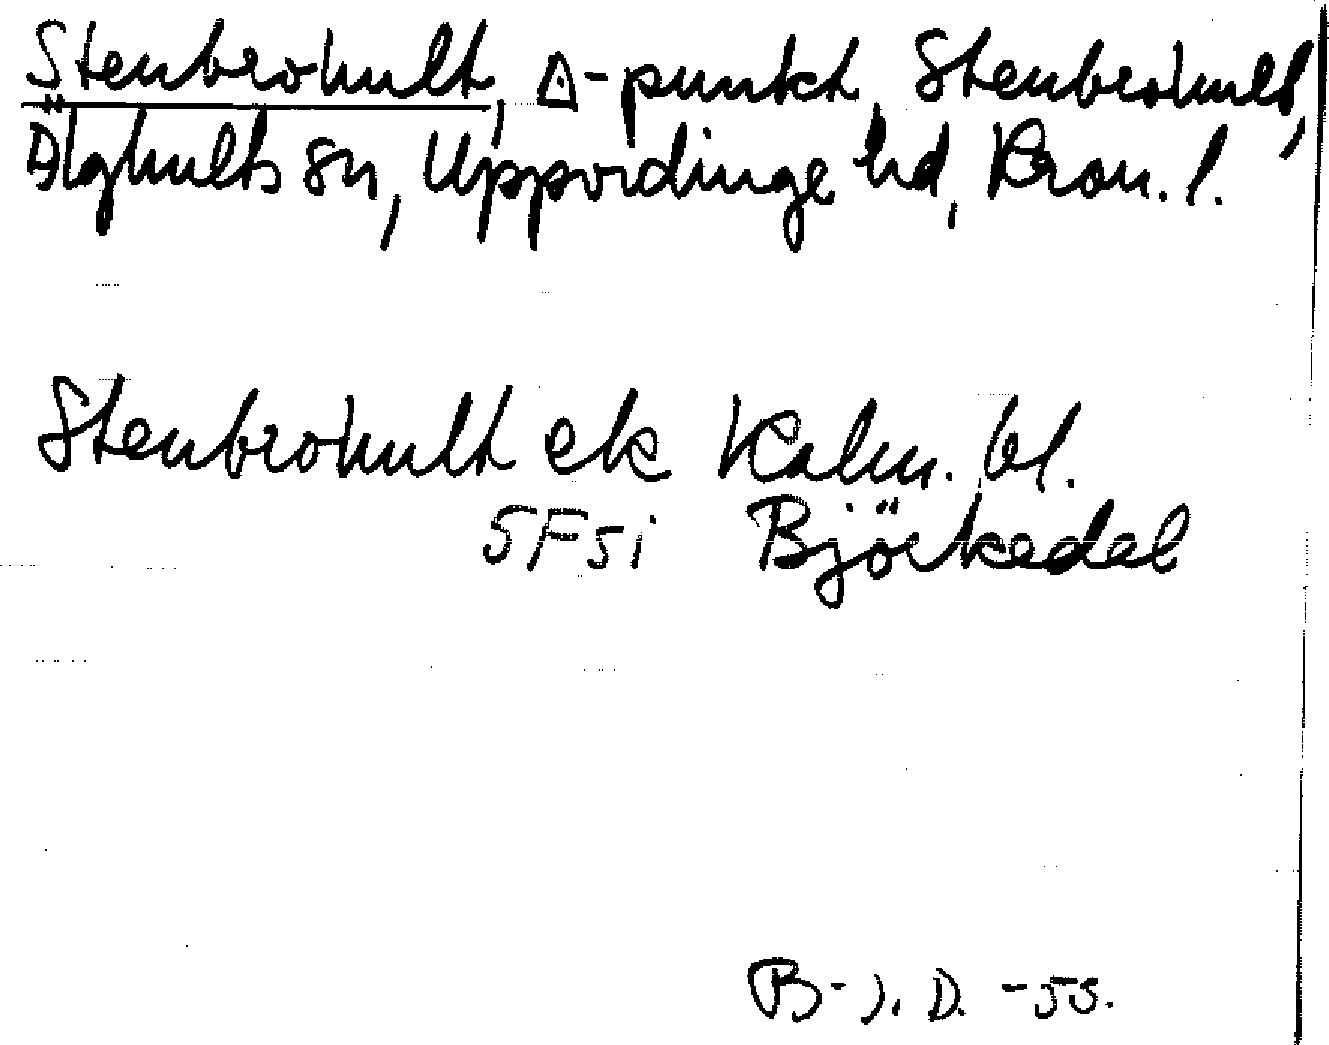 Stenbrohult, △-punkt, Stenbrohult,
Älghults sn, Uppvidinge hd, Kron. l.
Stenbrohult ek Kalm. bl.
5F5i Björkedal
B-J. D. -55.